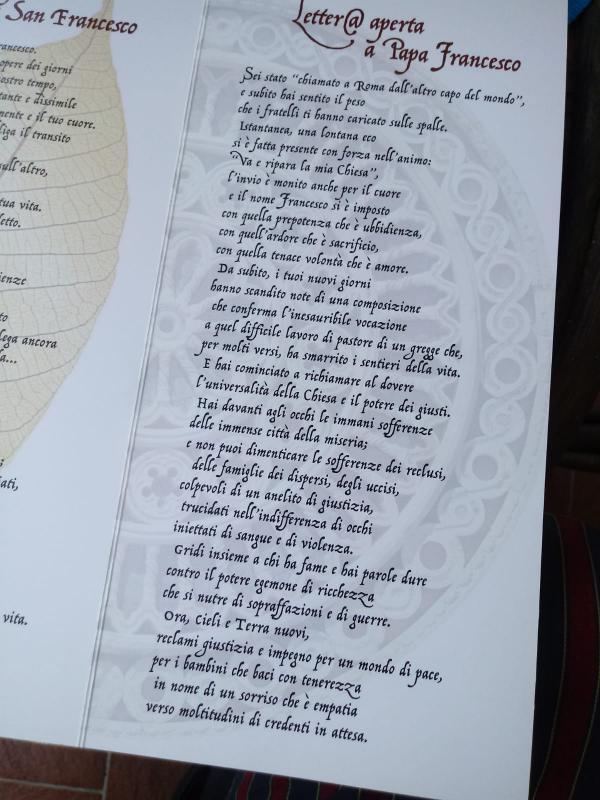 San Francesco
ancesco.
opere dei giorni
ostro tempo,
tante e dissimile
mente e il tuo cuore.
liga il transito
sull'altro,
tua vita.
letto.
ienze
to
lega ancora
a...
iati,
vita.
Letter@ aperta
a Papa Francesco
Sei stato "chiamato a Roma dall'altro capo del mondo",
e subito hai sentito il peso
che i fratelli ti hanno caricato sulle spalle.
Istantanea, una lontana eco
si è fatta presente con forza nell'animo:
"Va e ripara la mia Chiesa",
l'invio è monito anche per il cuore
e il nome Francesco si è imposto
con quella prepotenza che è ubbidienza,
con quell'ardore che è sacrificio,
con quella tenace volontà che è amore.
Da subito, i tuoi nuovi giorni
hanno scandito note di una composizione
che conferma l'inesauribile vocazione
a quel difficile lavoro di pastore di un gregge che,
per molti versi, ha smarrito i sentieri della vita.
E hai cominciato a richiamar al dovere
l'universalità della Chiesa e il potere dei giusti.
Hai davanti agli occhi le immani sofferenze
delle immense città della miseria;
e non puoi dimenticare le sofferenze dei reclusi,
delle famiglie dei dispersi, degli uccisi,
colpevoli di un anelito di giustizia,
trucidati nell'indifferenza di occhi
iniettati di sangue e di violenza.
Gridi insieme a chi ha fame e hai parole dure
contro il potere egemone di ricchezza
che si nutre di sopraffazioni e di guerre.
Ora, Cieli e Terra nuovi,
reclami giustizia e impegno per un mondo di pace,
per i bambini che baci con tenerezza
in nome di un sorriso che è empatia
verso moltitudini di credenti in attesa.